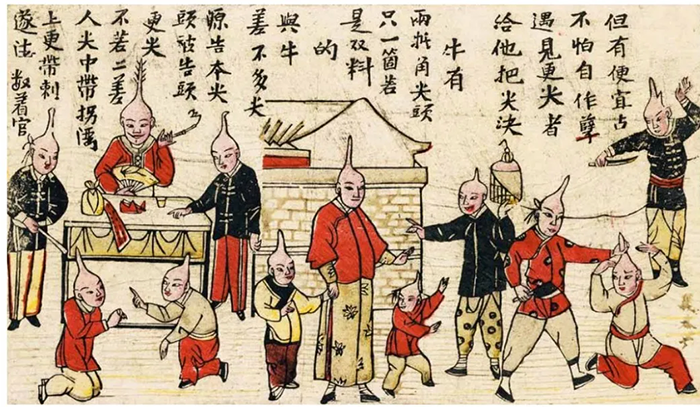 但有便宜占
不怕自作孽
遇見更尖者
給他把尖決
牛有
兩抵角尖頭
只一箇若
是双料
的
與牛
差不多尖
源告本尖
頭被告頭
更尖
不若二差
人尖中帶拐灣
上更帶刺
数着官